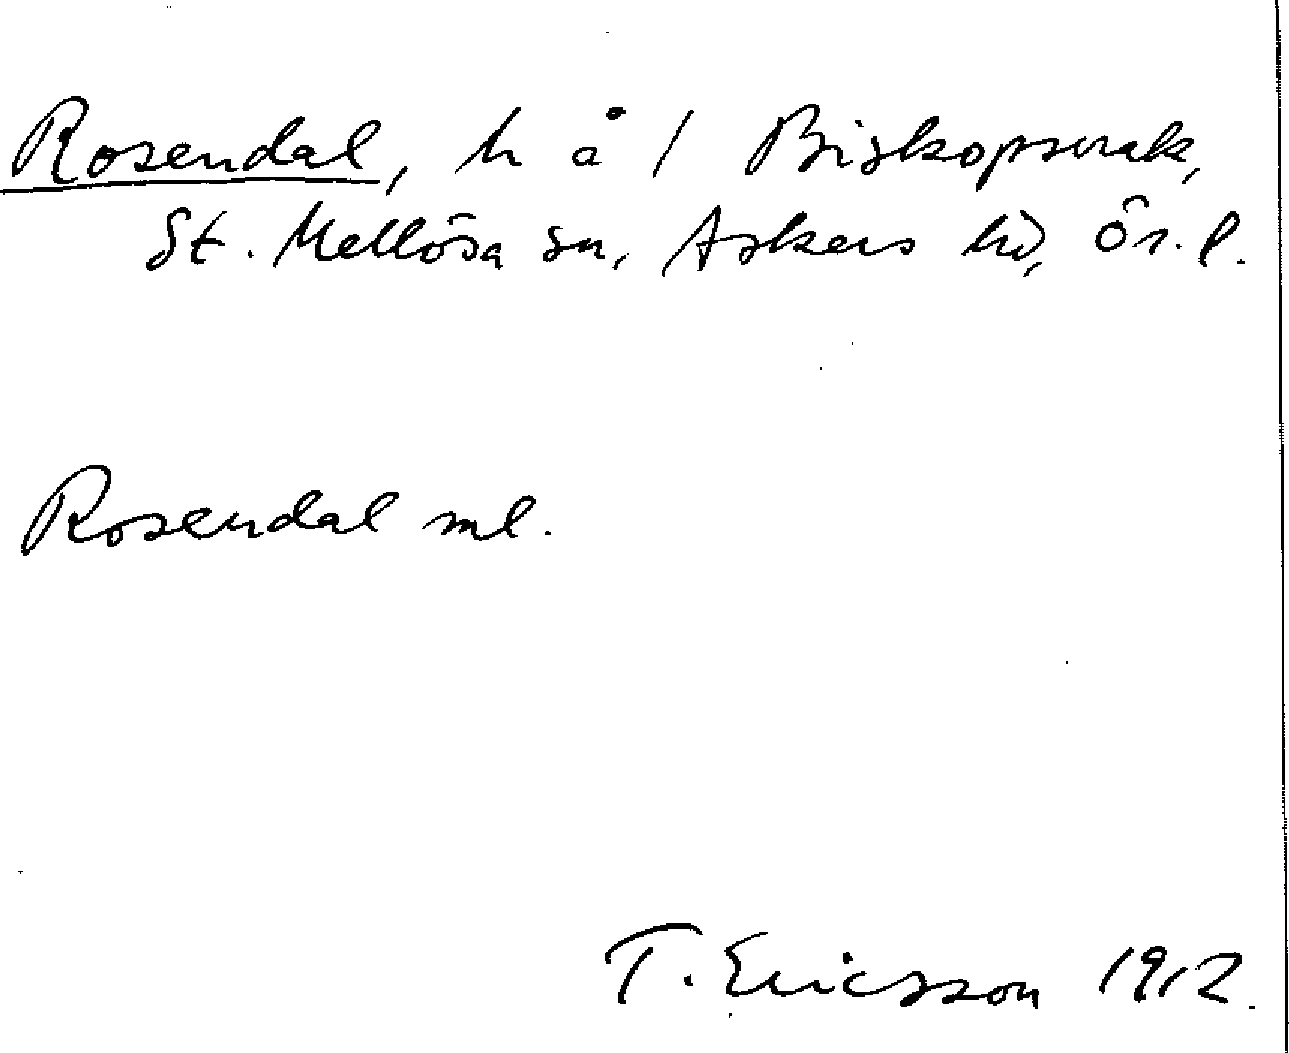 Rosendal, h å / Biskopsvrak,
St. Mellösa sn, Askers hd, Ör. l.
Rosendal ml.
T. Ericsson 1912.